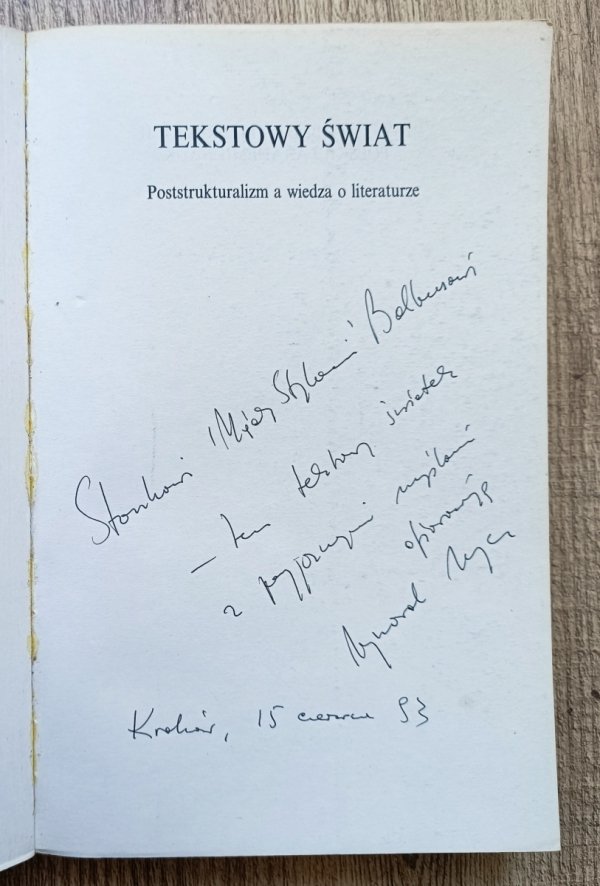 TEKSTOWY ŚWIAT
Poststrukturalizm a wiedza o literaturze
Staszkowi "Między Stylami" Balbusowi
– ten tekstowy światek
z przyjaznymi myślami
ofiarowuję
Ryszard Nycz
Kraków, 15 czerwca 93